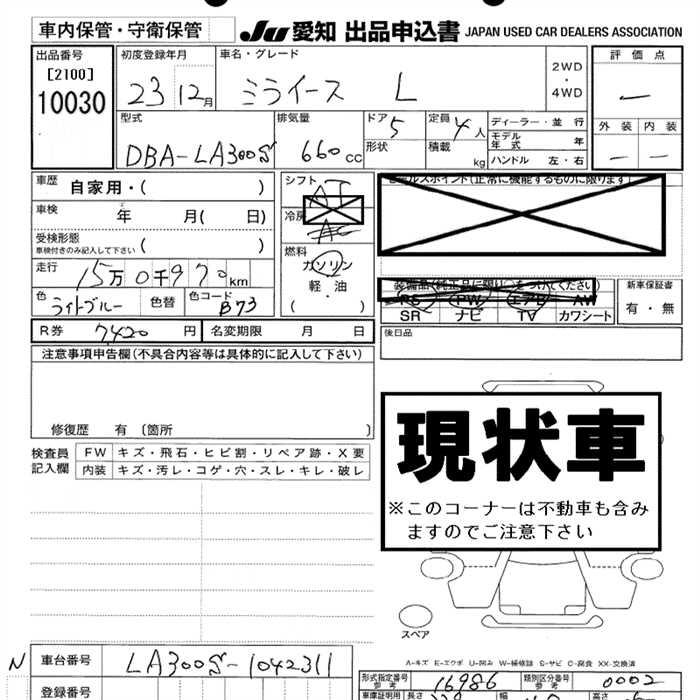 車内保管・守衛保管
JU 愛知 出品申込書 JAPAN USED CAR DEALERS ASSOCIATION
出品番号 初度登録年月 車名・グレード 評価点
[2100]
10030 23 12月 ミライース L 2WD・4WD
型式 排気量 ドア 5 定員 4人 ディーラー・並行 外装 内装
DBA-LA300S 660cc 形状 積載 kg モデル年式 年
ハンドル 左・右
車歴 自家用・( ) シフト AT
車検 年 月( 日) 冷房 AC
受検形態 車検付きのみ記入して下さい ( ) 燃料 ガソリン
走行 15万0千970km 軽・油 ( )
色 ライトブルー 色替 色コード B73
装備品(純正品に限り○をつけてください) 新車保証書
PS PW エアB AW 有・無
SR ナビ TV カワシート
R券 7420円 名変期限 月 日 後日品
注意事項申告欄(不具合内容等は具体的に記入して下さい)
修復歴 有 〔箇所 〕
検査員記入欄 FW キズ・飛石・ヒビ割・リペア跡・X要
内装 キズ・汚レ・コゲ・穴・スレ・キレ・破レ
現状車
※このコーナーは不動車も含み
ますのでご注意下さい
スペア
A-キズ E-エクボ U-凹み W-補修跡 S-サビ C-腐食 XX-交換済
N 車台番号 LA300S-1042311
形式指定番号 参考 16986 類別区分番号 参考 0002
登録番号 車庫証明用 参考 長さ 幅 高さ